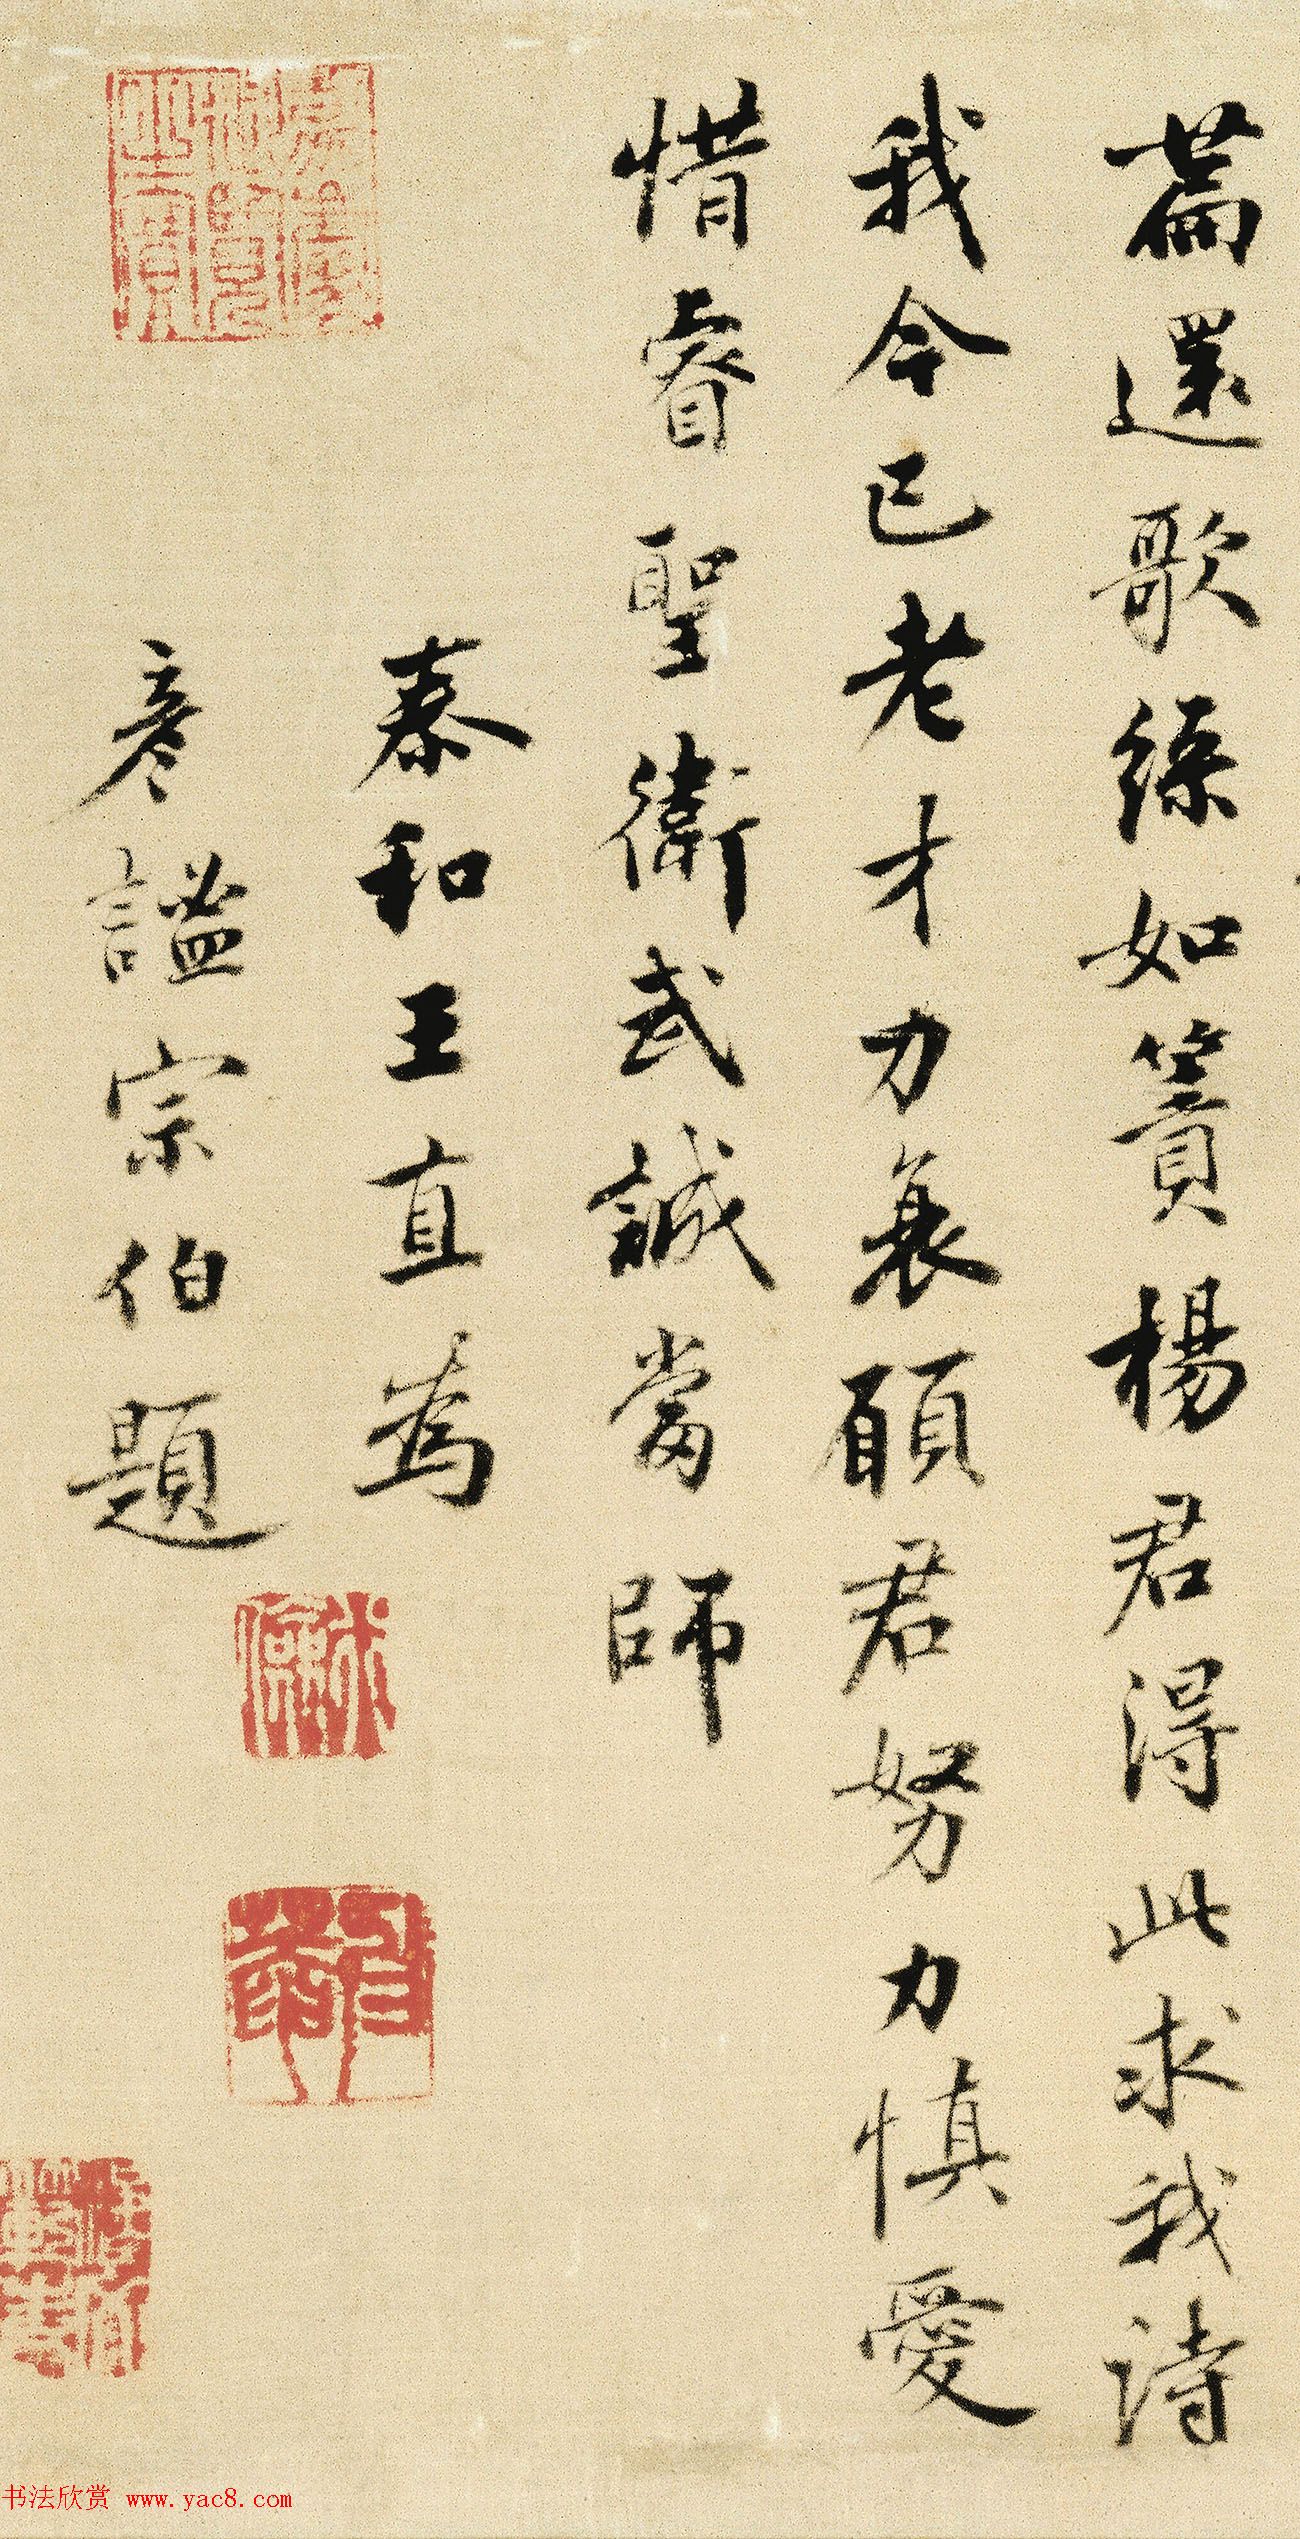 篇還歌綠如簀楊君得此求我詩
我今已老才力衰願君努力慎愛
惜睿聖衛武誠當師
泰和王直為
彥謐宗伯題
书法欣赏 www.yac8.com